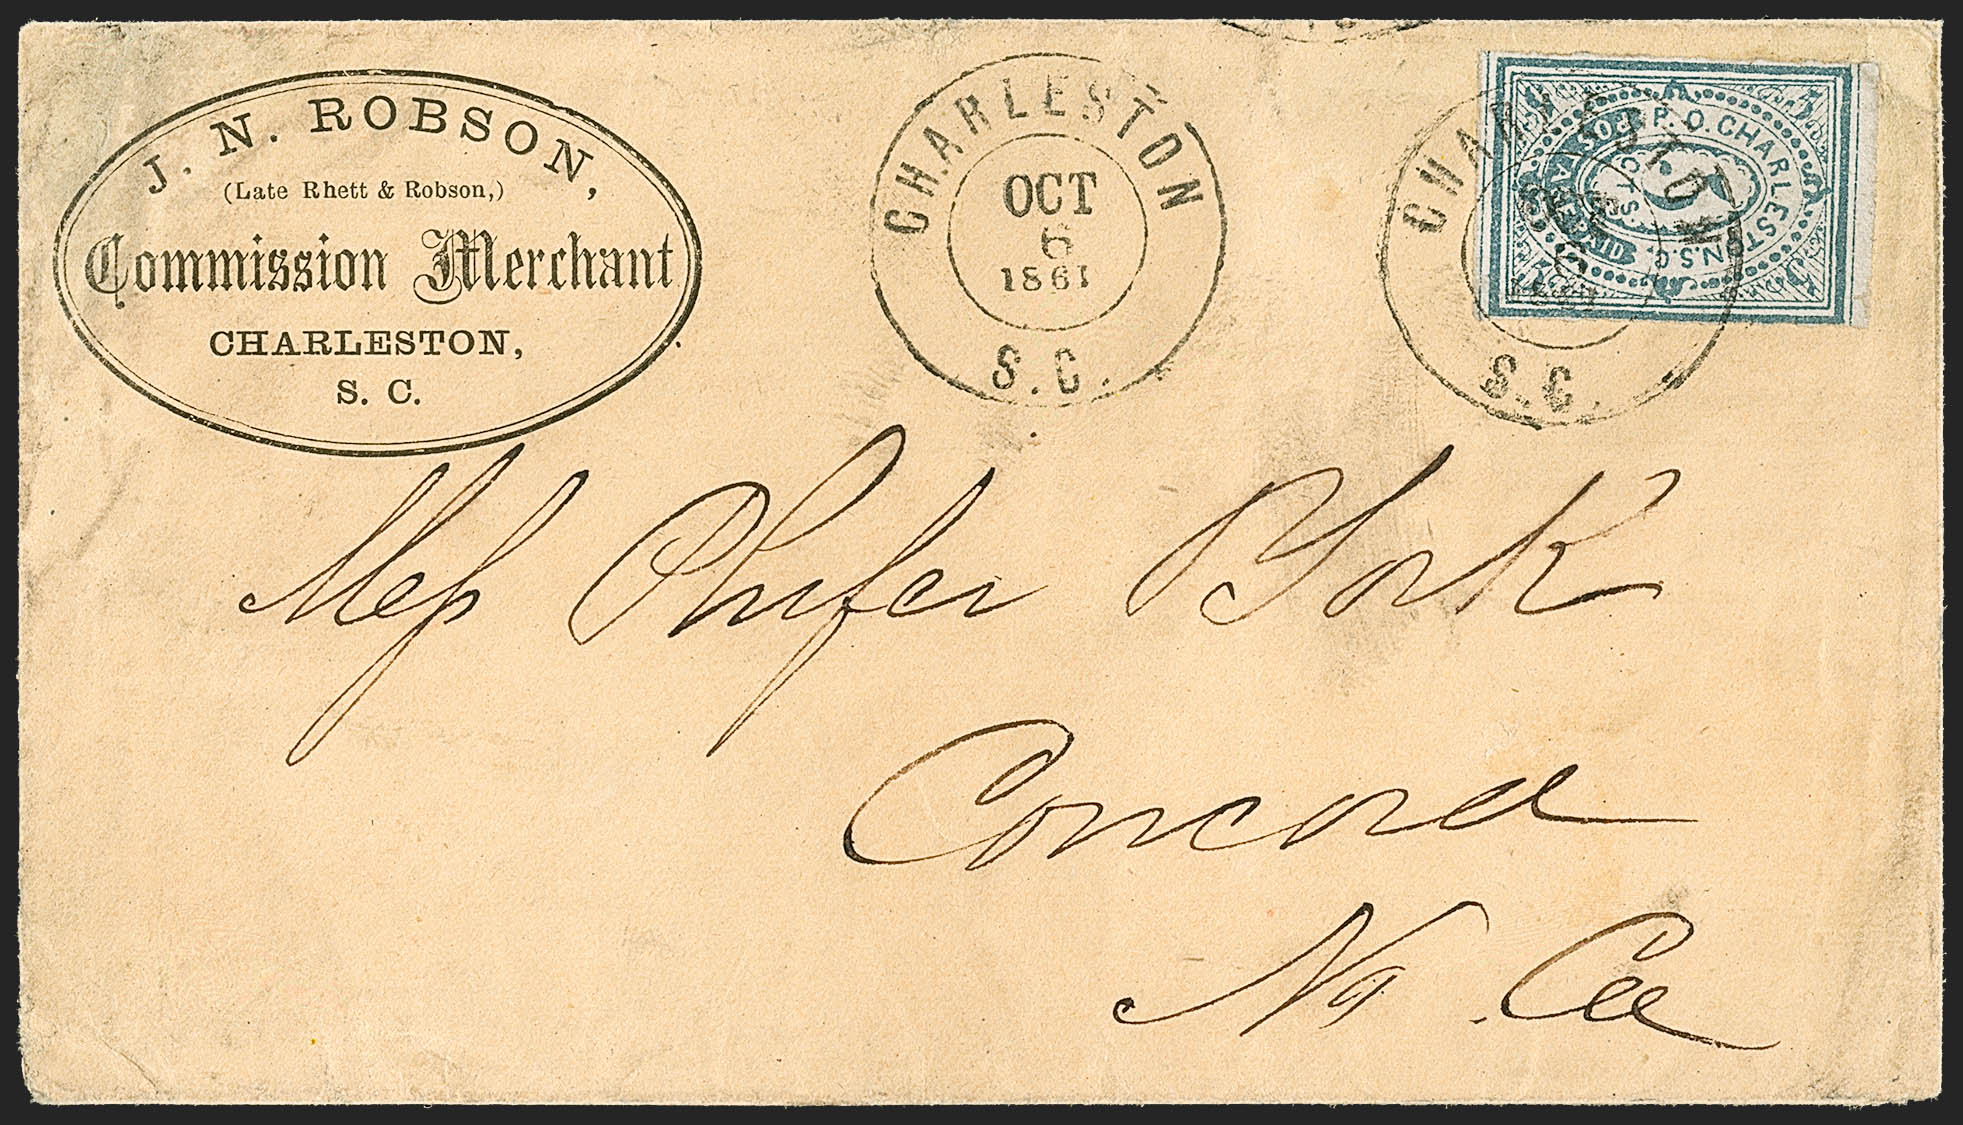 J. N. ROBSON,
(Late Rhett & Robson,)
Commission Merchant
CHARLESTON,
S. C.
CHARLESTON
OCT
6
1861
S.C.
CHARLESTON
S.C.
P.O. CHARLESTON, S.C.
POSTAGE
PREPAID
5
CTS
Mess Phifer & York
Concord
No. Ca